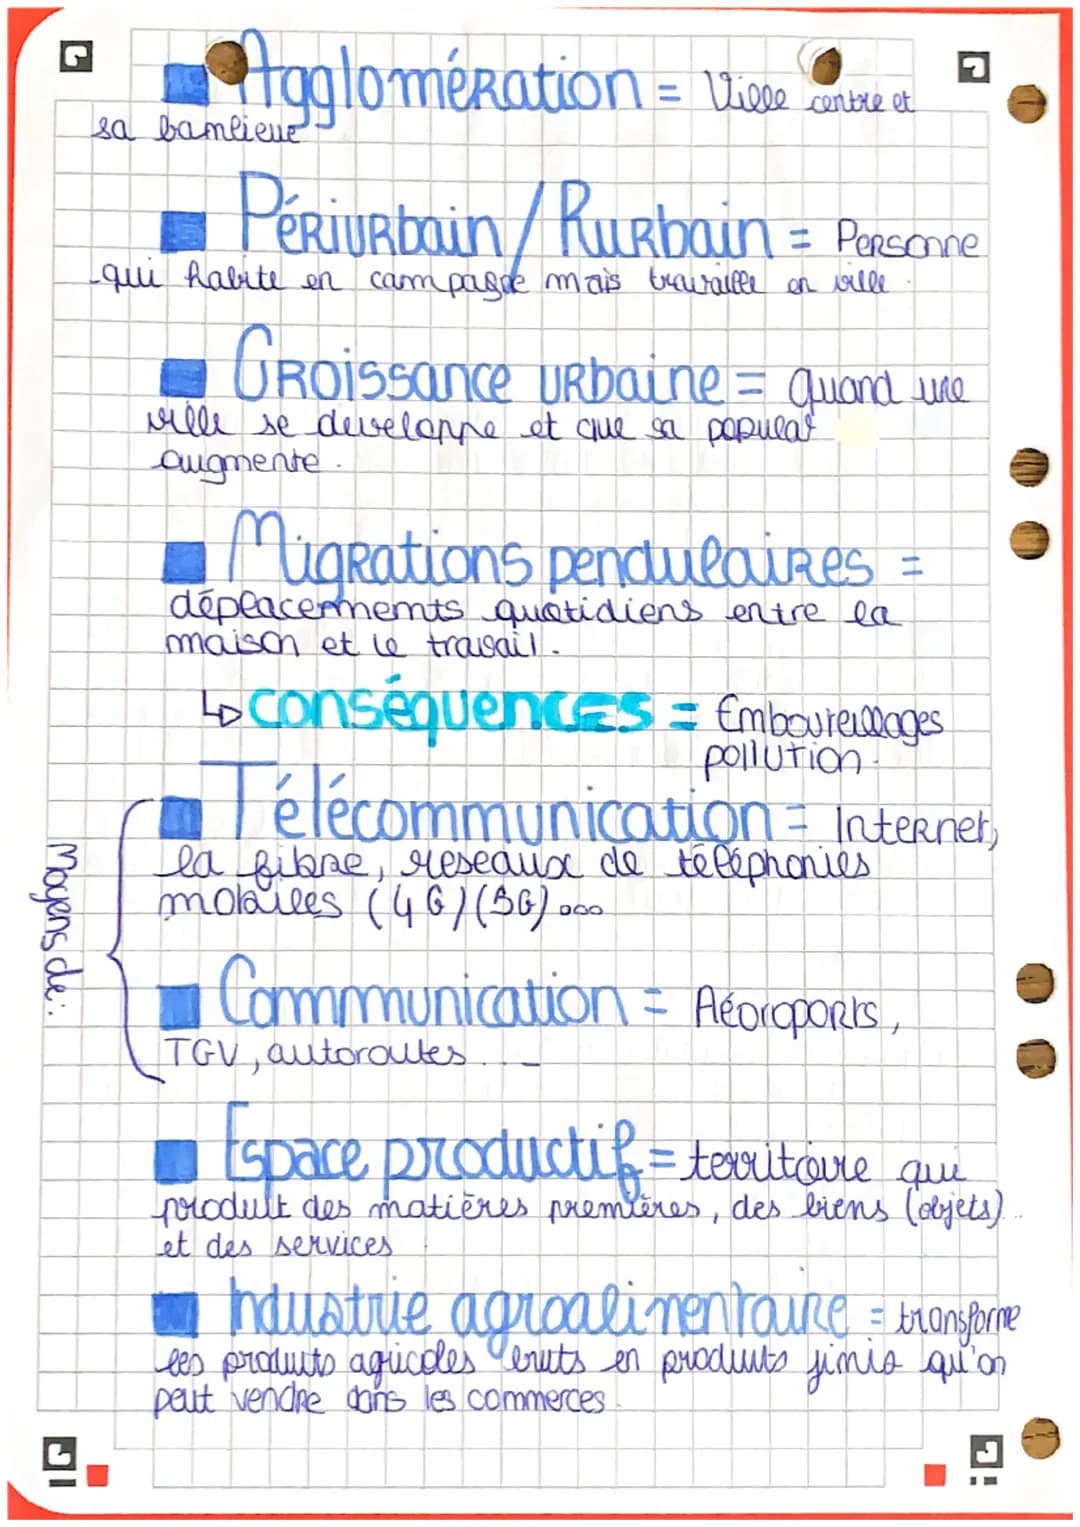 Agglomération = Ville centre et
sa banlieue
Périurbain / Rurbain = Personne
qui habite en campagne mais travaille en ville.
Croissance urbaine = quand une
ville se developpe et que sa populat°
augmente.
Migrations pendulaires =
déplacemments quotidiens entre la
maison et le travail.
↳ conséquences = Embouteillages
pollution.
Moyens de:
Télécommunication = Internet,
la fibre, reseaux de téléphonies
mobiles (4G)(5G)...
Commmunication = Aéoroports,
TGV, autoroutes...
Espace productif = territoire qui
produit des matières premières, des biens (objets)..
et des services
Industrie agroalimentaire = transforme
les produits agricoles bruts en produits finis qu'on
peut vendre dans les commerces.